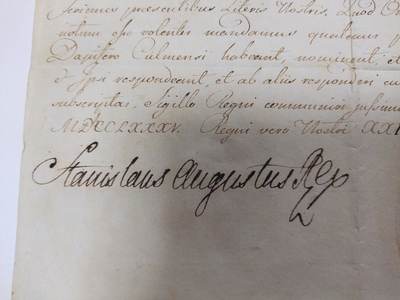 præsentibus Literis Nostris. Quod
notum esse volentes mandamus quatenus
Dapifero Culmensi habeant, nominent, et
et Ipsi respondeant, et ab aliis responderi
subscriptas, Sigillo Regni communiri jussimus
MDCCLXXXV. Regni vero Nostri XXI
Stanislaus Augustus Rex